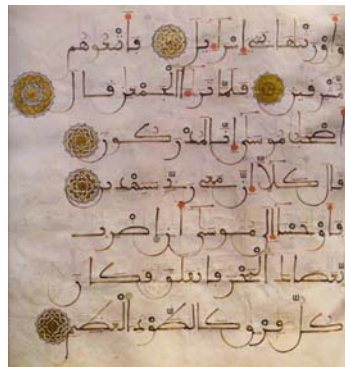 وأورثنها بنى إسرايل فاتبعوهم
مشرقين فلما ترا الجمعن قال
أصحب موسى إنا لمدركون
قال كلا إن معى ربى سيهدين
فأوحينا إلى موسى أن اضرب
بعصاك البحر فانفلق فكان
كل فرق كالطود العظيم